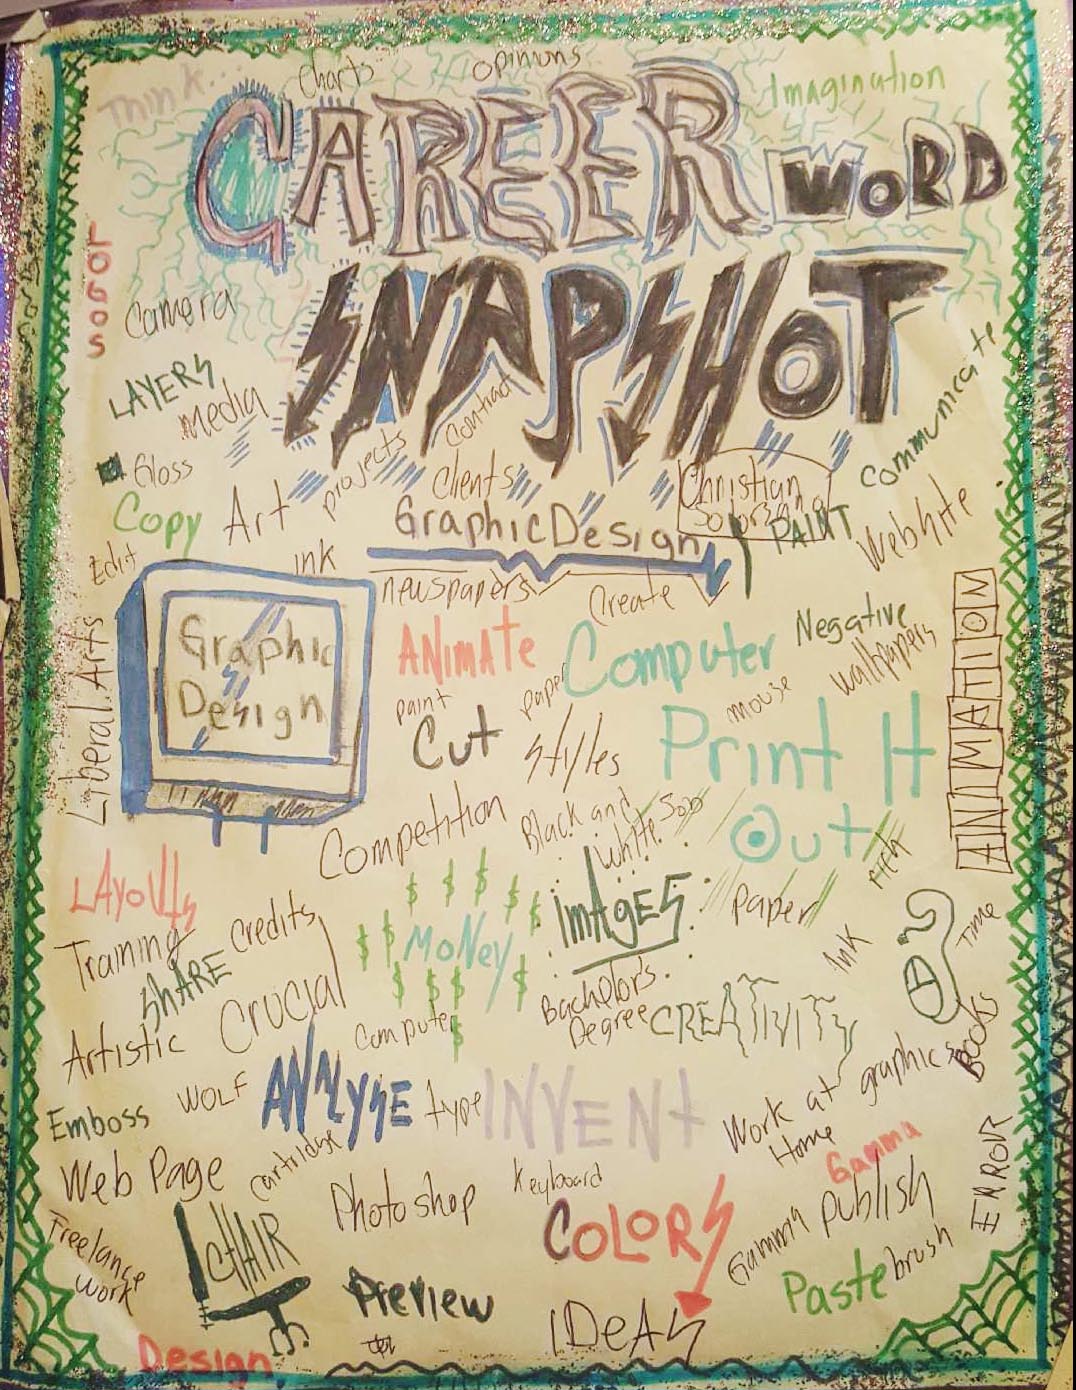 Think...
Charts
Opinions
Imagination
CAREER WORD
SNAPSHOT
LOGOS
Camera
LAYERS
media
Gloss
Copy
Art
projects
contract
Clients
Christian
Communicate
Graphic Design
PAINT
Website
Edit
ink
newspapers
Create
Liberal Arts
Graphic
Design
ANIMATE
Computer
Negative
wallpapers
ANIMATION
paint
paper
mouse
Cut
Styles
Print It
Out
Competition
Black and
white
Job
LAYOUTS
Training
SHARE
Credits
MONEY
$ $ $ $ $ $ $ $ $ $ $ $ $
IMAGES
Paper
Ink
Time
Artistic
Crucial
Computer
Bachelor's
Degree
CREATIVITY
Books
graphics
Emboss
WOLF
ANALYSE
type
INVENT
Work at
Home
Gamma
ERROR
Web Page
cartridge
Photoshop
Keyboard
COLORS
Gamma
Publish
Freelance
work
CHAIR
Preview
IDEAS
Paste
brush
Design